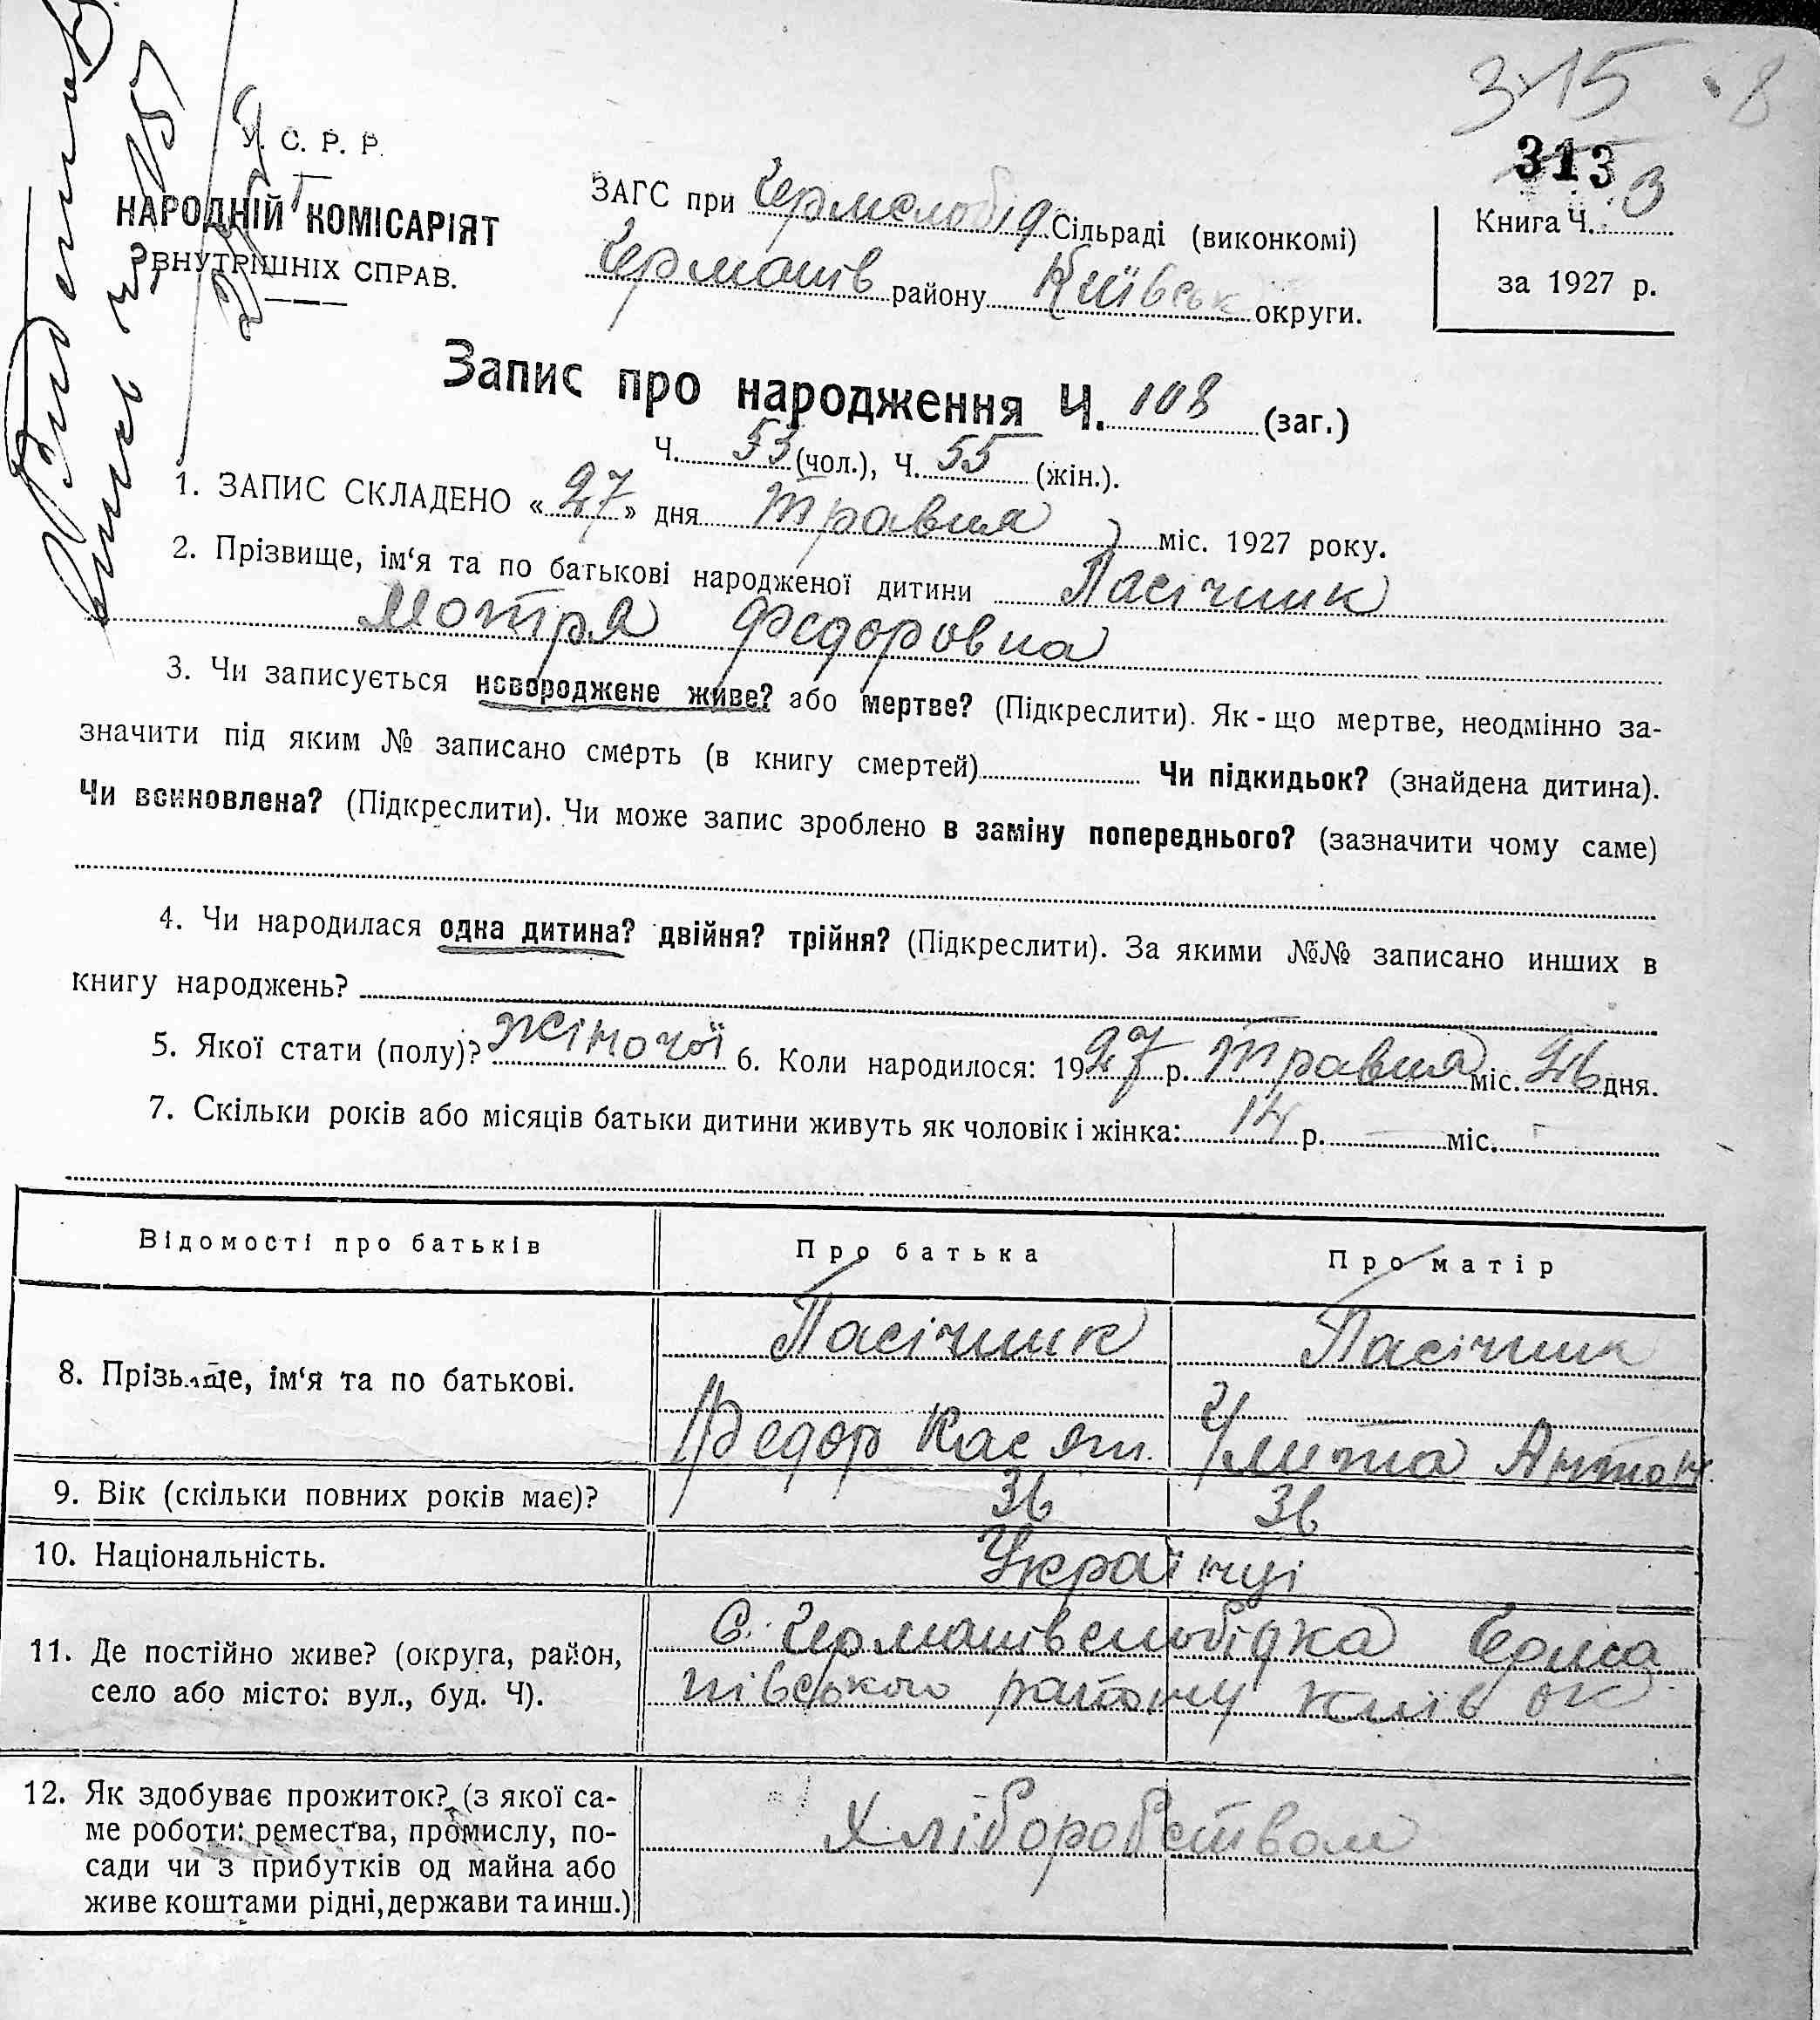 315 8
У. С. Р. Р.
НАРОДНІЙ КОМІСАРІЯТ
ВНУТРІШНІХ СПРАВ.
ЗАГС при Гермслобід Сільраді (виконкомі)
Германів району Київськ округи.
313 3
Книга Ч.
за 1927 р.
Запис про народження Ч. 108 (заг.)
Ч. 53 (чол.), Ч. 55 (жін.).
1. ЗАПИС СКЛАДЕНО « 27 » дня Травня міс. 1927 року.
2. Прізвище, ім‘я та по батькові народженої дитини Пасічник
Мотря Федоровна
3. Чи записується новороджене живе? або мертве? (Підкреслити). Як-що мертве, неодмінно за-
значити під яким № записано смерть (в книгу смертей) Чи підкидьок? (знайдена дитина).
Чи всиновлена? (Підкреслити). Чи може запис зроблено в заміну попереднього? (зазначити чому саме)
4. Чи народилася одна дитина? двійня? трійня? (Підкреслити). За якими №№ записано инших в
книгу народжень?
5. Якої стати (полу)? Жіночої 6. Коли народилося: 1927 р. Травня міс. 26 дня.
7. Скільки років або місяців батьки дитини живуть як чоловік і жінка: 14 р. — міс. —
Відомості про батьків Про батька Про матір
8. Прізвище, ім‘я та по батькові. Пасічник Пасічник
Федор Касян. Улита Антон.
9. Вік (скільки повних років має)? 36 36
10. Національність. Українці
11. Де постійно живе? (округа, район, село або місто: вул., буд. Ч). С. Германівслобідка Герма
нівського району Київ ок
12. Як здобуває прожиток? (з якої са-
ме роботи: ремества, промислу, по-
сади чи з прибутків од майна або
живе коштами рідні, держави та инш.) Хліборобством